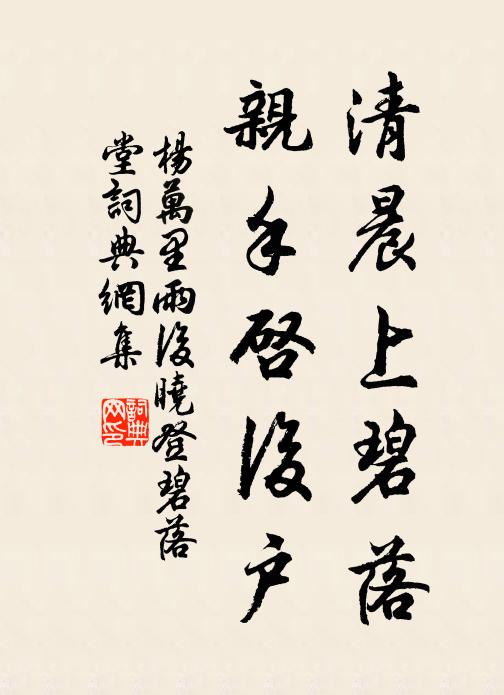 清晨上碧落
親手啓後戶
楊萬里雨後曉登碧落
堂詞典網集
詞典
网印